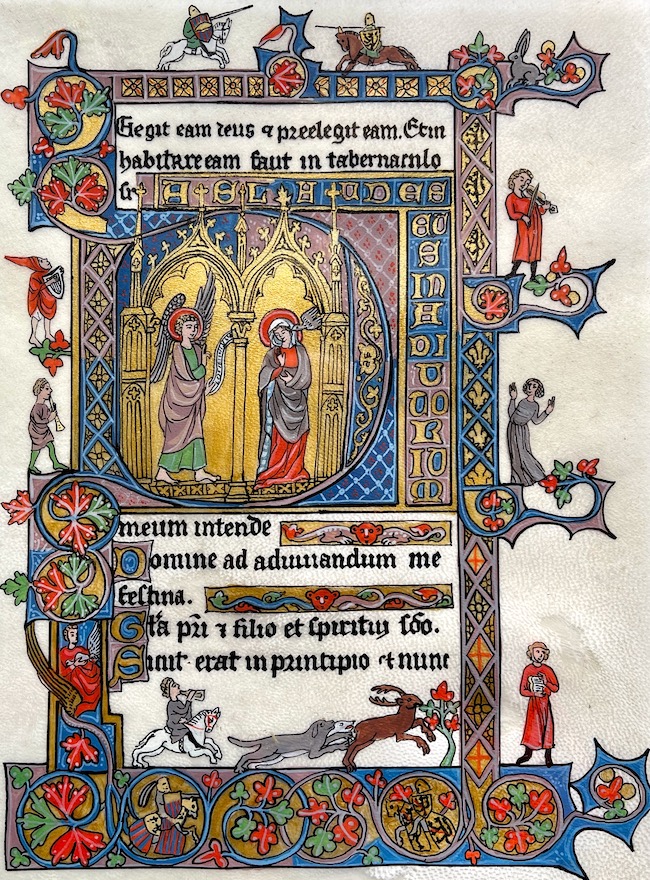 Elegit eam deus ⁊ preelegit eam. Et in
habitare eam faut in tabernaculo
D
EU
S
IN
A DI
U
TO
RI
UM
meum intende
Domine ad adiuuandum me
festina.
Gła pri ⁊ filio et spiritui sco.
Sicut erat in principio et nunc